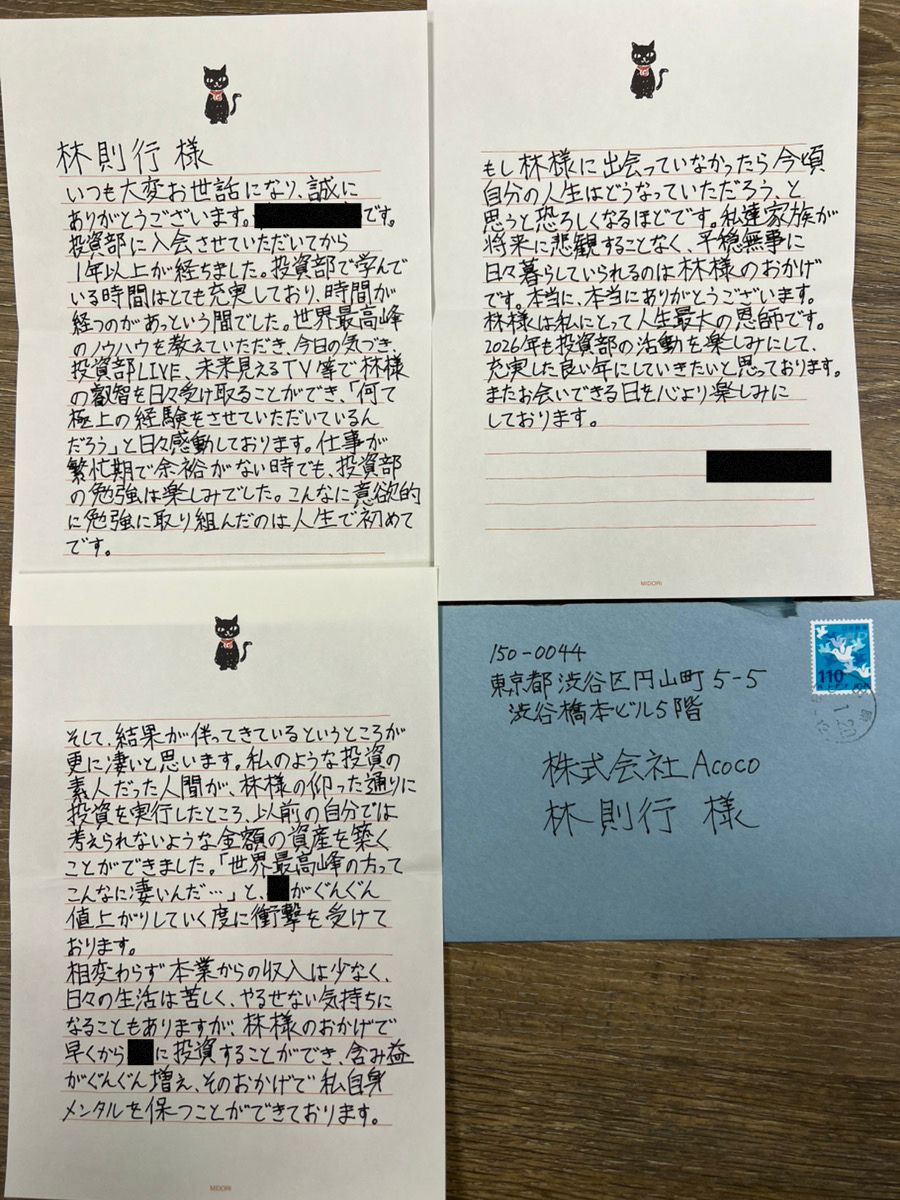 林則行様
いつも大変お世話になり、誠に
ありがとうございます。
です。
投資部に入会させていただいてから
1年以上が経ちました。投資部で学んで
いる時間はとても充実しており、時間が
経つのがあっという間でした。世界最高峰
のノウハウを教えていただき、今日の気づき、
投資部LIVE、未来見えるTV等で林様
の叡智を日々受け取ることができ、「何て
極上の経験をさせていただいているん
だろう」と日々感動しております。仕事が
繁忙期で余裕がない時でも、投資部
の勉強は楽しみでした。こんなに意欲的
に勉強に取り組んだのは人生で初めて
です。
そして、結果が伴ってきているというところが
更に凄いと思います。私のような投資の
素人だった人間が、林様の仰った通りに
投資を実行したところ、以前の自分では
考えられないような金額の資産を築く
ことができました。「世界最高峰の方って
こんなに凄いんだ…」と、
がぐんぐん
値上がりしていく度に衝撃を受けて
おります。
相変わらず本業からの収入は少なく、
日々の生活は苦しく、やるせない気持ちに
なることもありますが、林様のおかげで
早くから
に投資することができ、含み益
がぐんぐん増え、そのおかげで私自身
メンタルを保つことができております。
MIDORI
もし林様に出会っていなかったら今頃
自分の人生はどうなっていただろう、と
思うと恐ろしくなるほどです。私達家族が
将来に悲観することなく、平穏無事に
日々暮らしていられるのは林様のおかげ
です。本当に、本当にありがとうございます。
林様は私にとって人生最大の恩師です。
2026年も投資部の活動を楽しみにして、
充実した良い年にしていきたいと思っております。
またお会いできる日を心より楽しみに
しております。
MIDORI
150-0044
東京都渋谷区円山町5-5
渋谷橋本ビル5階
株式会社Acoco
林則行様
110